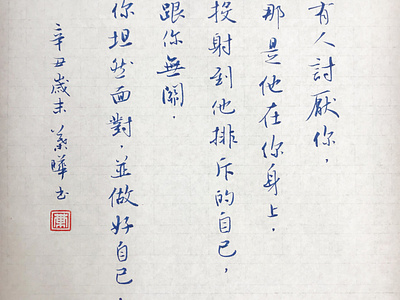 有人討厭你，
那是他在你身上，
投射到他排斥的自己，
跟你無關．
你坦然面對．並做好自己．
辛丑歲末 葉曄书